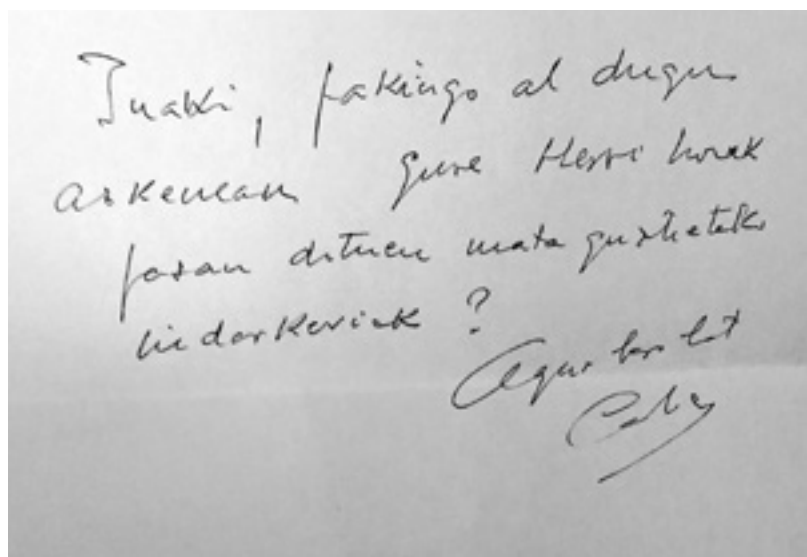 Inaki, jakingo al dugu
azkenean gure Herri honek
jasan dituen mota guztietako
indarkeriak?
Agur bero bat